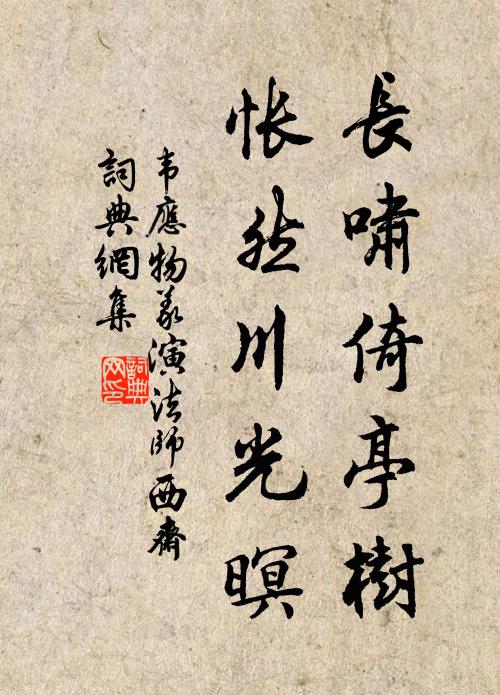 長嘯倚亭樹
悵然川光暝
韦應物義演法師西齋
詞典網集
詞典
网印